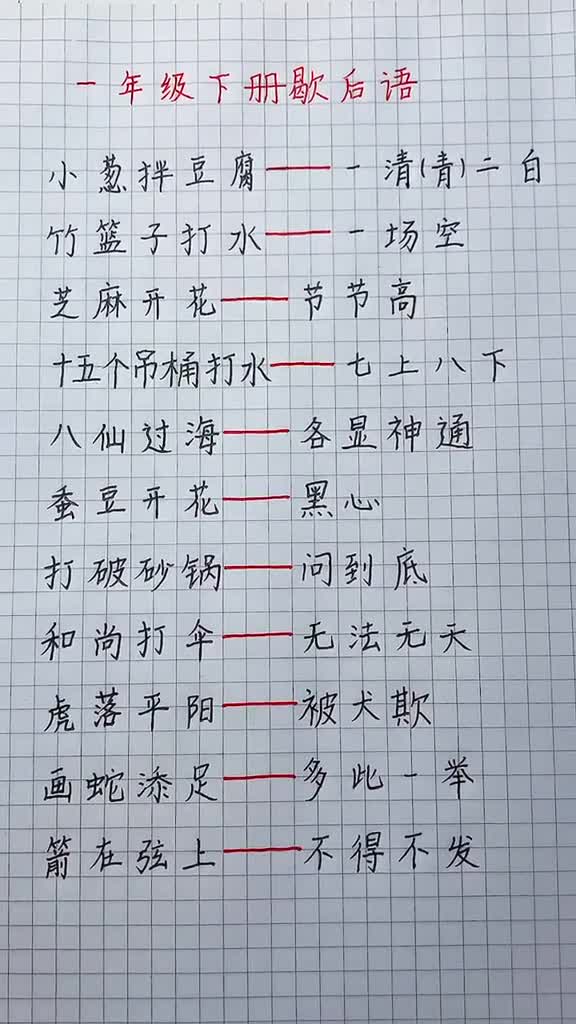 一年级下册歇后语
小葱拌豆腐——一清(青)二白
竹篮子打水——一场空
芝麻开花——节节高
十五个吊桶打水——七上八下
八仙过海——各显神通
蚕豆开花——黑心
打破砂锅——问到底
和尚打伞——无法无天
虎落平阳——被犬欺
画蛇添足——多此一举
箭在弦上——不得不发